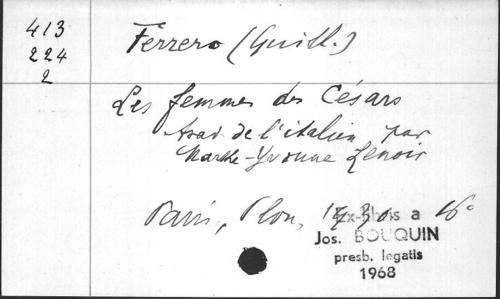 413
224
2
Ferrero (Guill.)
Les femmes des Césars
trad. de l'italien par
Marthe-Yvonne Lenoir
Paris, Plon, 16°
Ex-libris a
Jos. BOUQUIN
presb. legatis
1968